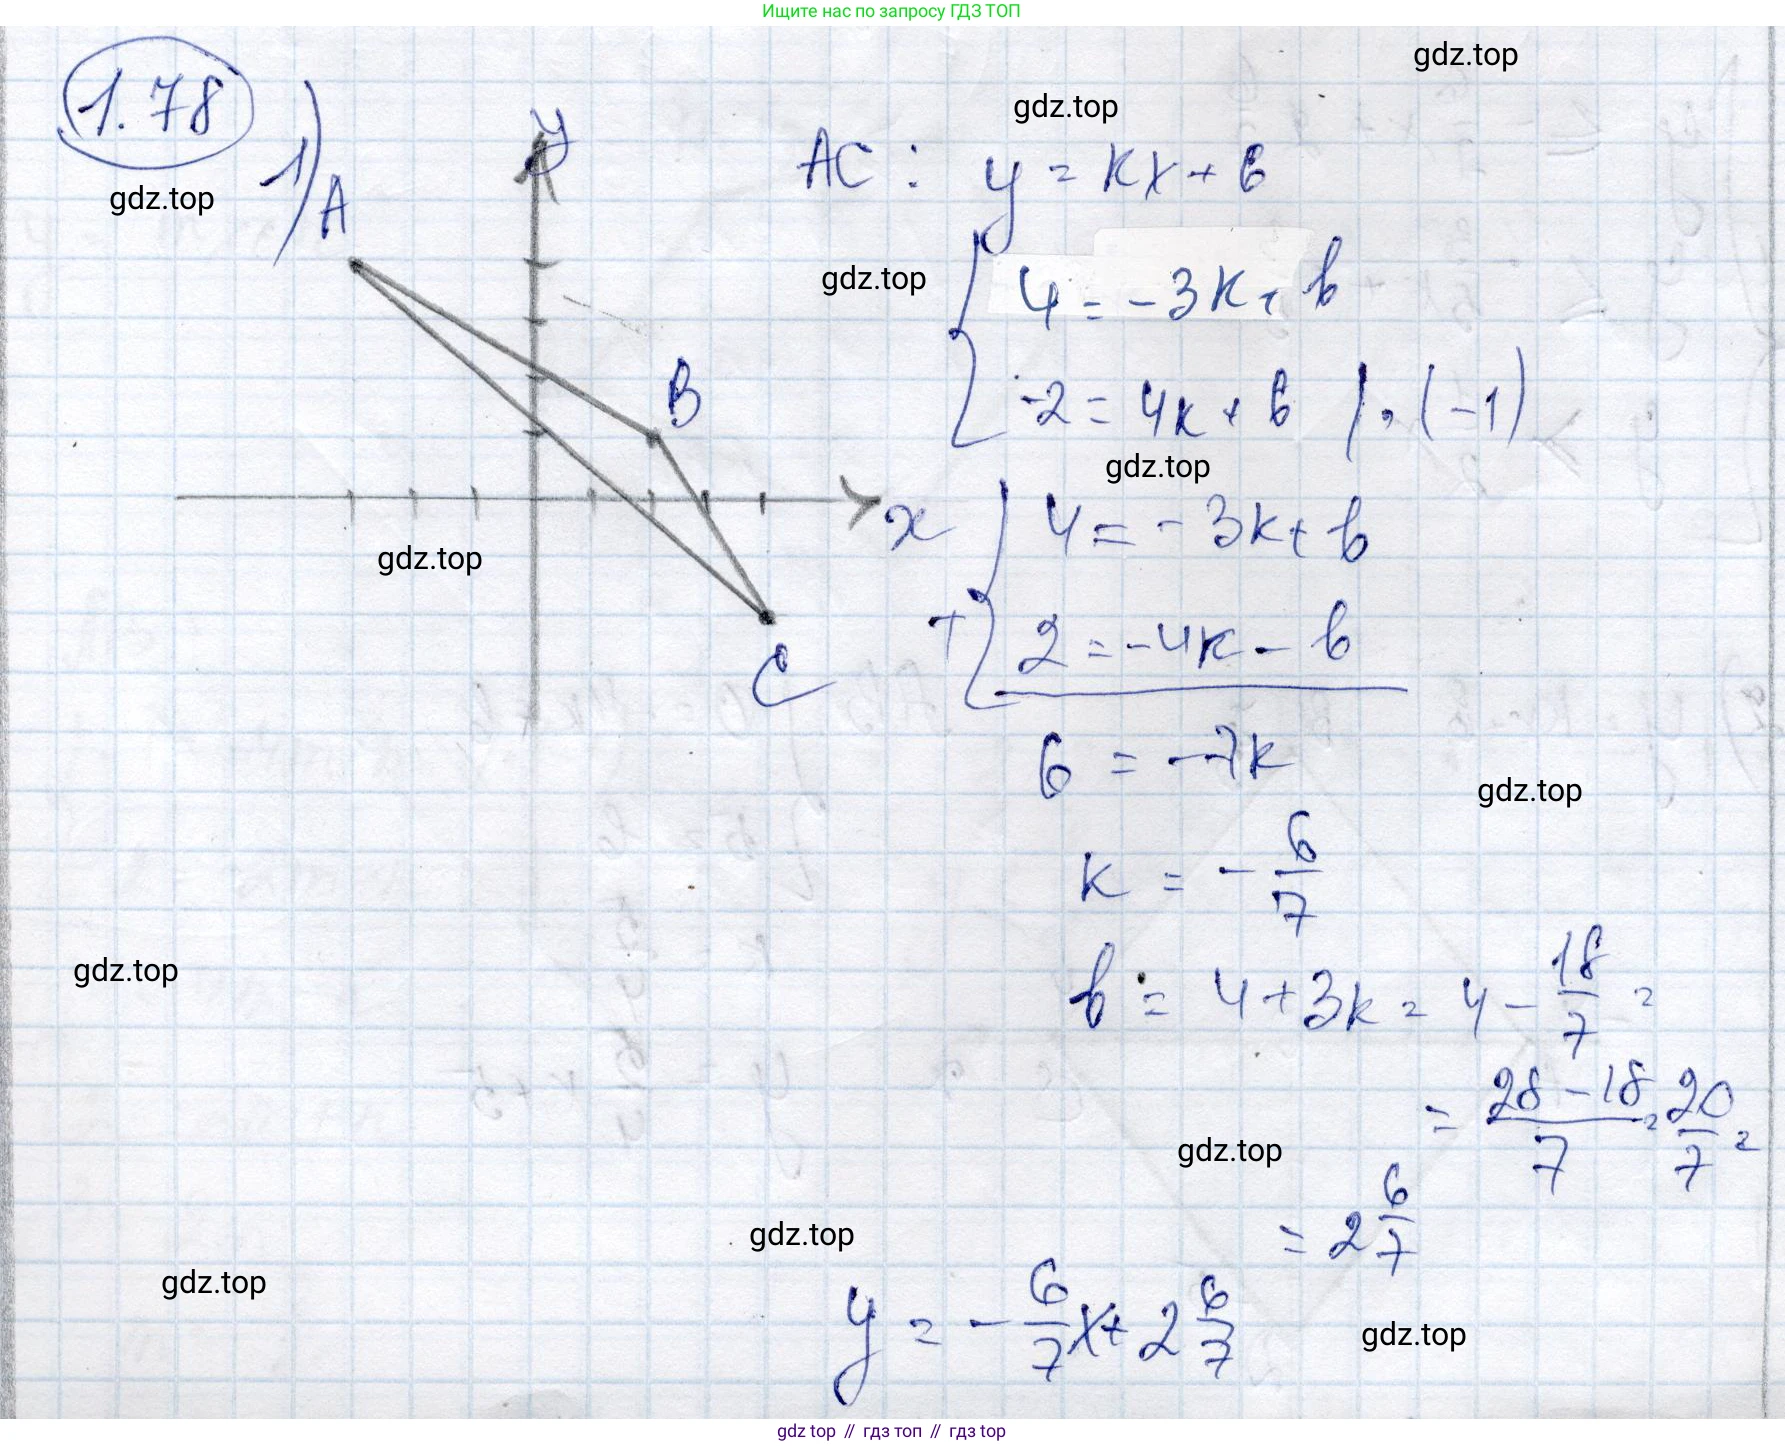 Ищите нас по запросу ГДЗ ТОП
gdz.top
1.78
gdz.top
1)
y
AC: y = kx + b
gdz.top
A
gdz.top
4 = -3k + b
B
-2 = 4k + b | · (-1)
gdz.top
x
4 = -3k + b
gdz.top
+
2 = -4k - b
C
6 = -7k
gdz.top
k = - 6/7
gdz.top
b = 4 + 3k = 4 - 18/7 =
= 28 - 18/7 = 20/7 =
gdz.top
= 2 6/7
gdz.top
gdz.top
y = - 6/7 x + 2 6/7
gdz.top
gdz top // гдз топ // гдз top